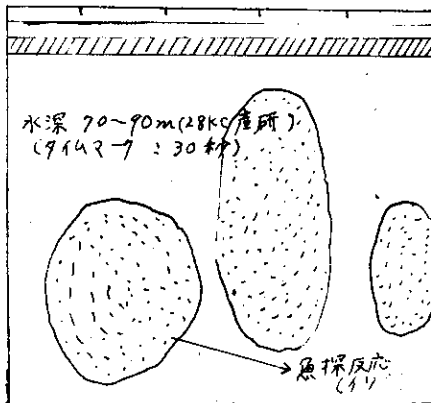 水深 70〜90m(28KC 産研)
(タイムマーク : 30秒)
魚探反応
(イ)